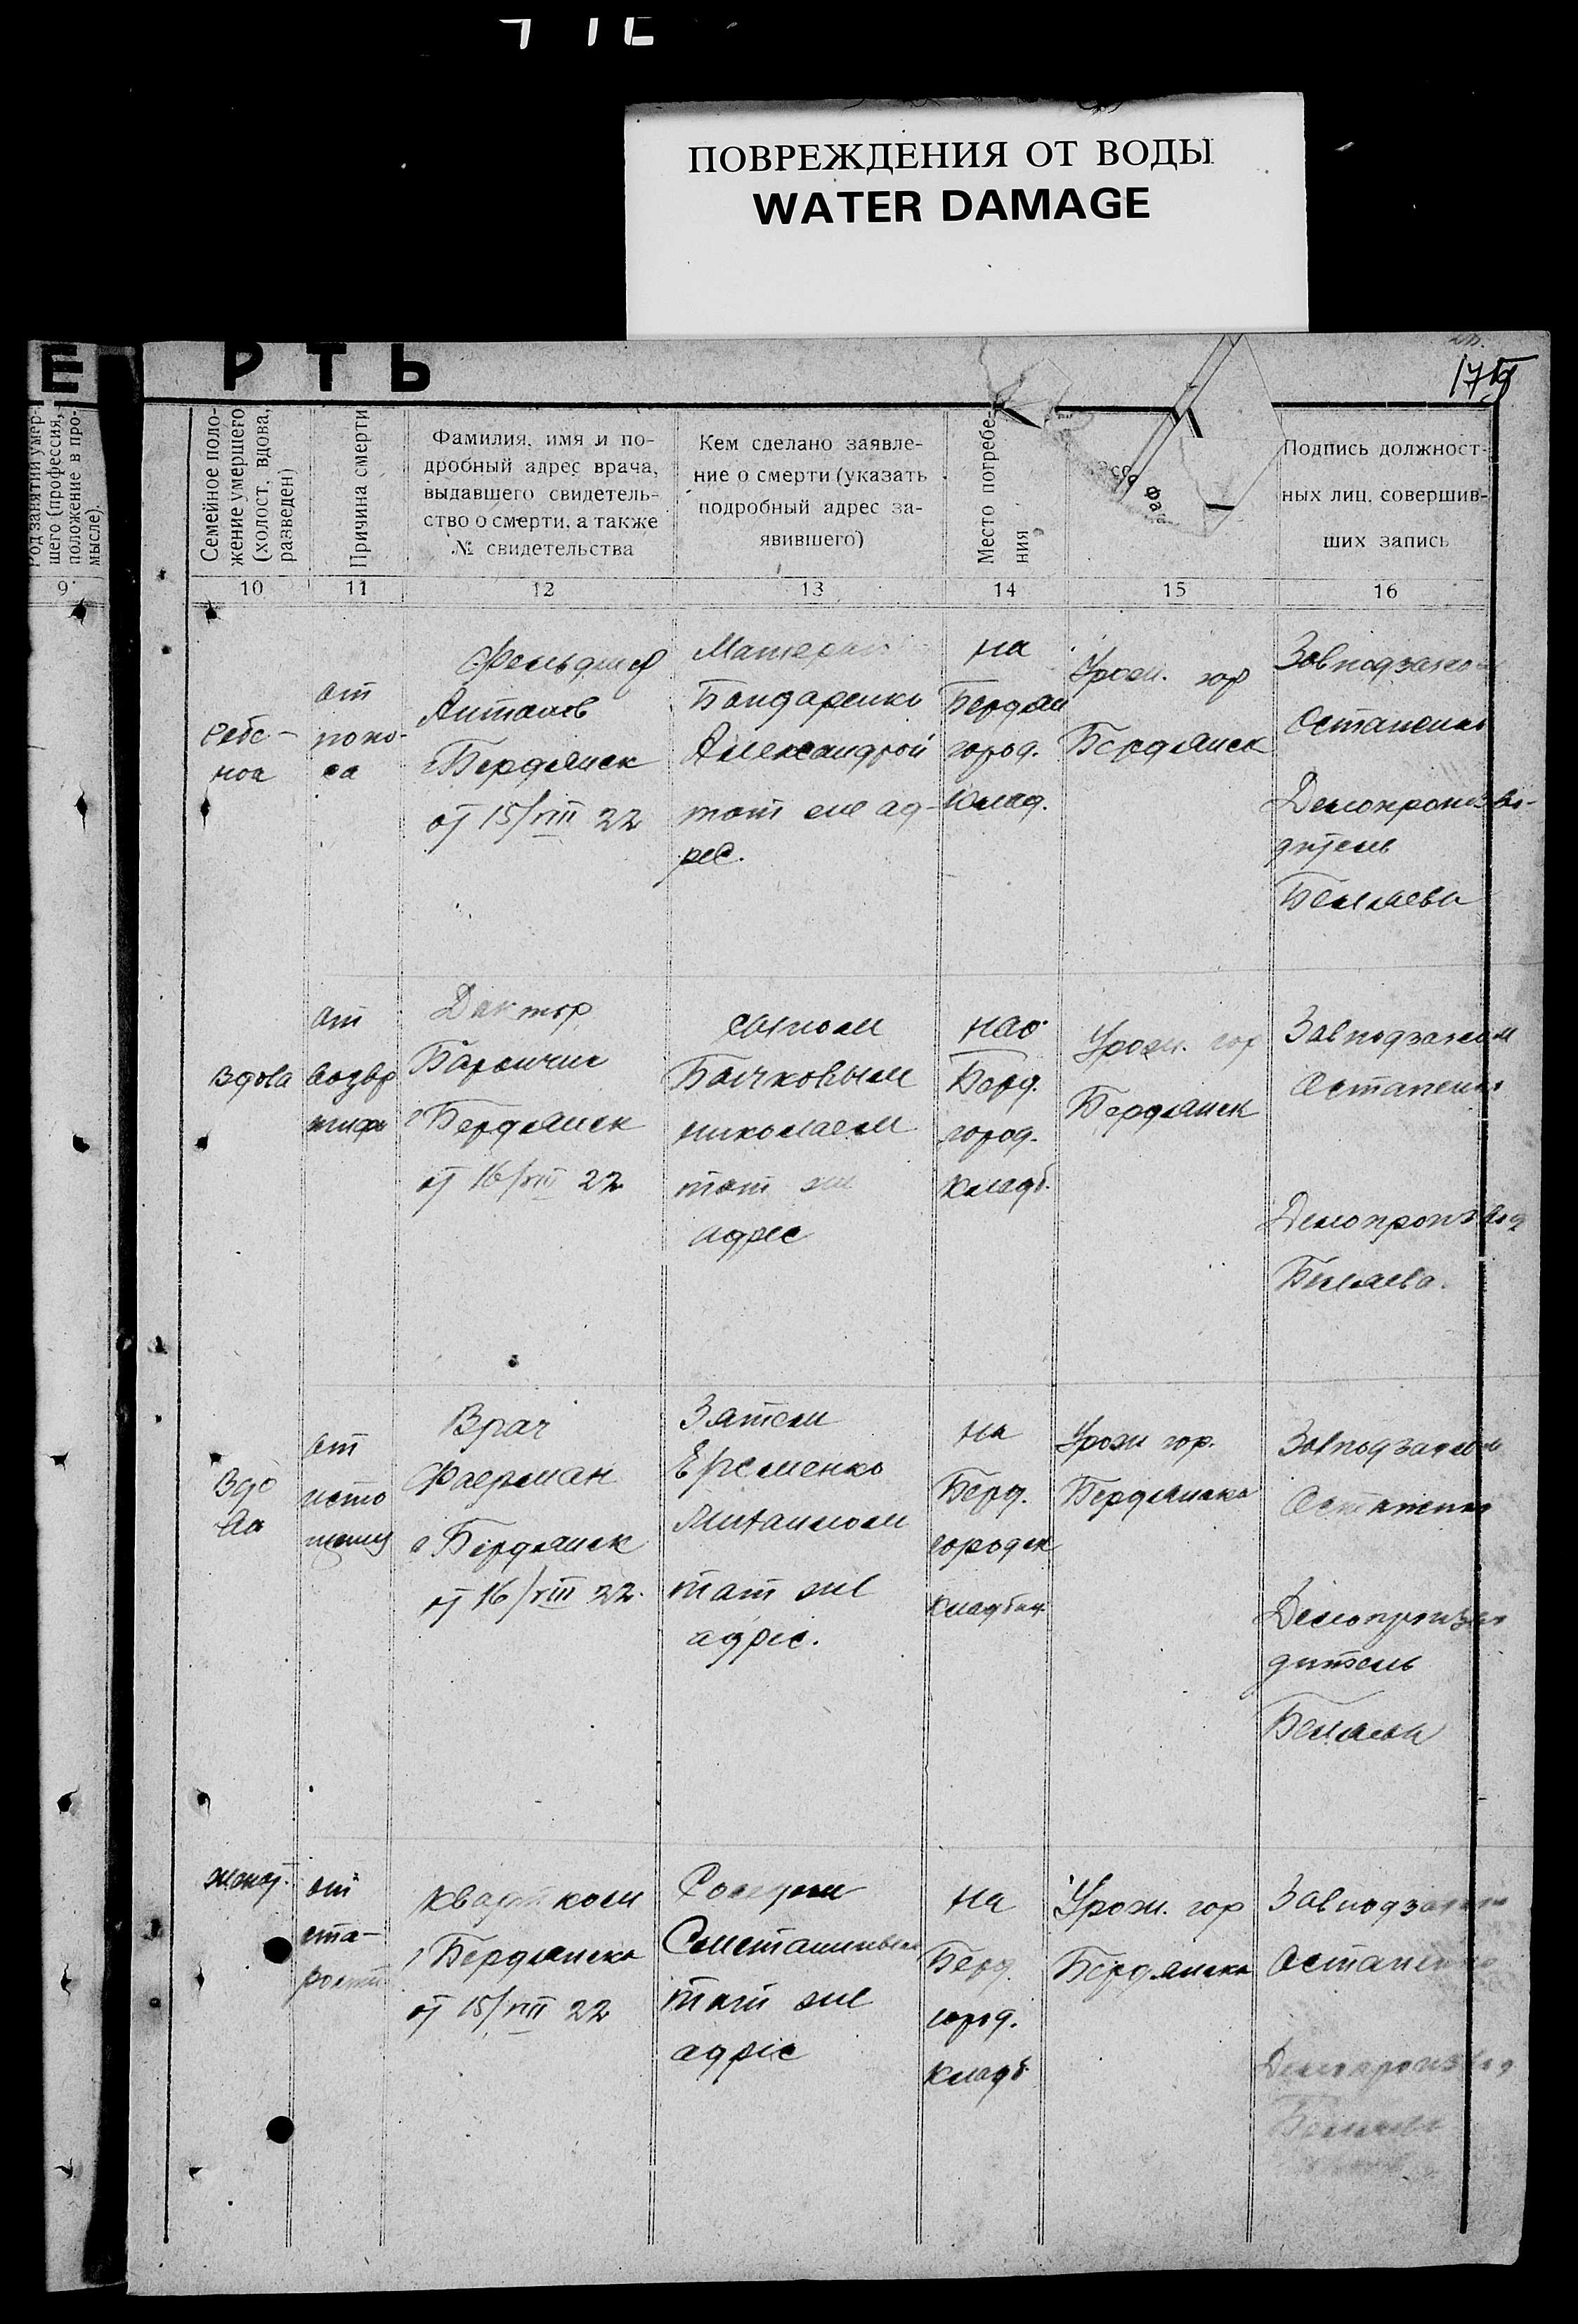 ПОВРЕЖДЕНИЯ ОТ ВОДЫ
WATER DAMAGE
Е Р Т Ь
17
Род занятий умер-
шего (профессия,
положение в про-
мысле).
Семейное поло-
жение умершего
(холост, вдова,
разведен)
Причина смерти
Фамилия, имя и по-
дробный адрес врача,
выдавшего свидетель-
ство о смерти, а также
№ свидетельства
Кем сделано заявле-
ние о смерти (указать
подробный адрес за-
явившего)
Место погребе-
ния
Подпись должност-
ных лиц, совершив-
ших запись
9
10
11
12
13
14
15
16
от
поно-
са
Фельдшер
Антонов
г Бердянск
от 15/VIII 22
Матерью
Бондаренко
Александрой
тот же ад-
рес.
на
Бердян
город.
клад.
Урож. гор
Бердянск
Завподзагсом
Остапенко
Делопроизво-
дитель
Беляева
Вдова
от
возвр
тифа
Доктор
г Бердянск
от 16/VIII 22
сыном
Бычковым
николаем
тот же
адрес
на
Берд.
город.
кладб.
Урож. гор
Бердянск
Завподзагсом
Остапенко
Делопроизвод
Беляева.
Вдо
ва
от
исто
щения
Врач
Фаерман
г Бердянск
от 16/VIII 22.
Зятем
Еременко
Михаилом
тот же
адрес.
на
Берд.
городск
кладбищ
Урож гор.
Бердянска
Завподзагсом
Остапенко
Делопроизво
дитель
Беляева
женат.
от
ста-
рости
Квартком
г Бердянска
от 15/VIII 22
Соседом
тот же
адрес
на
Берд.
город.
кладб
Урож. гор
Бердянска
Завподзагсом
Остапенко
Делопроизвод
Беляева